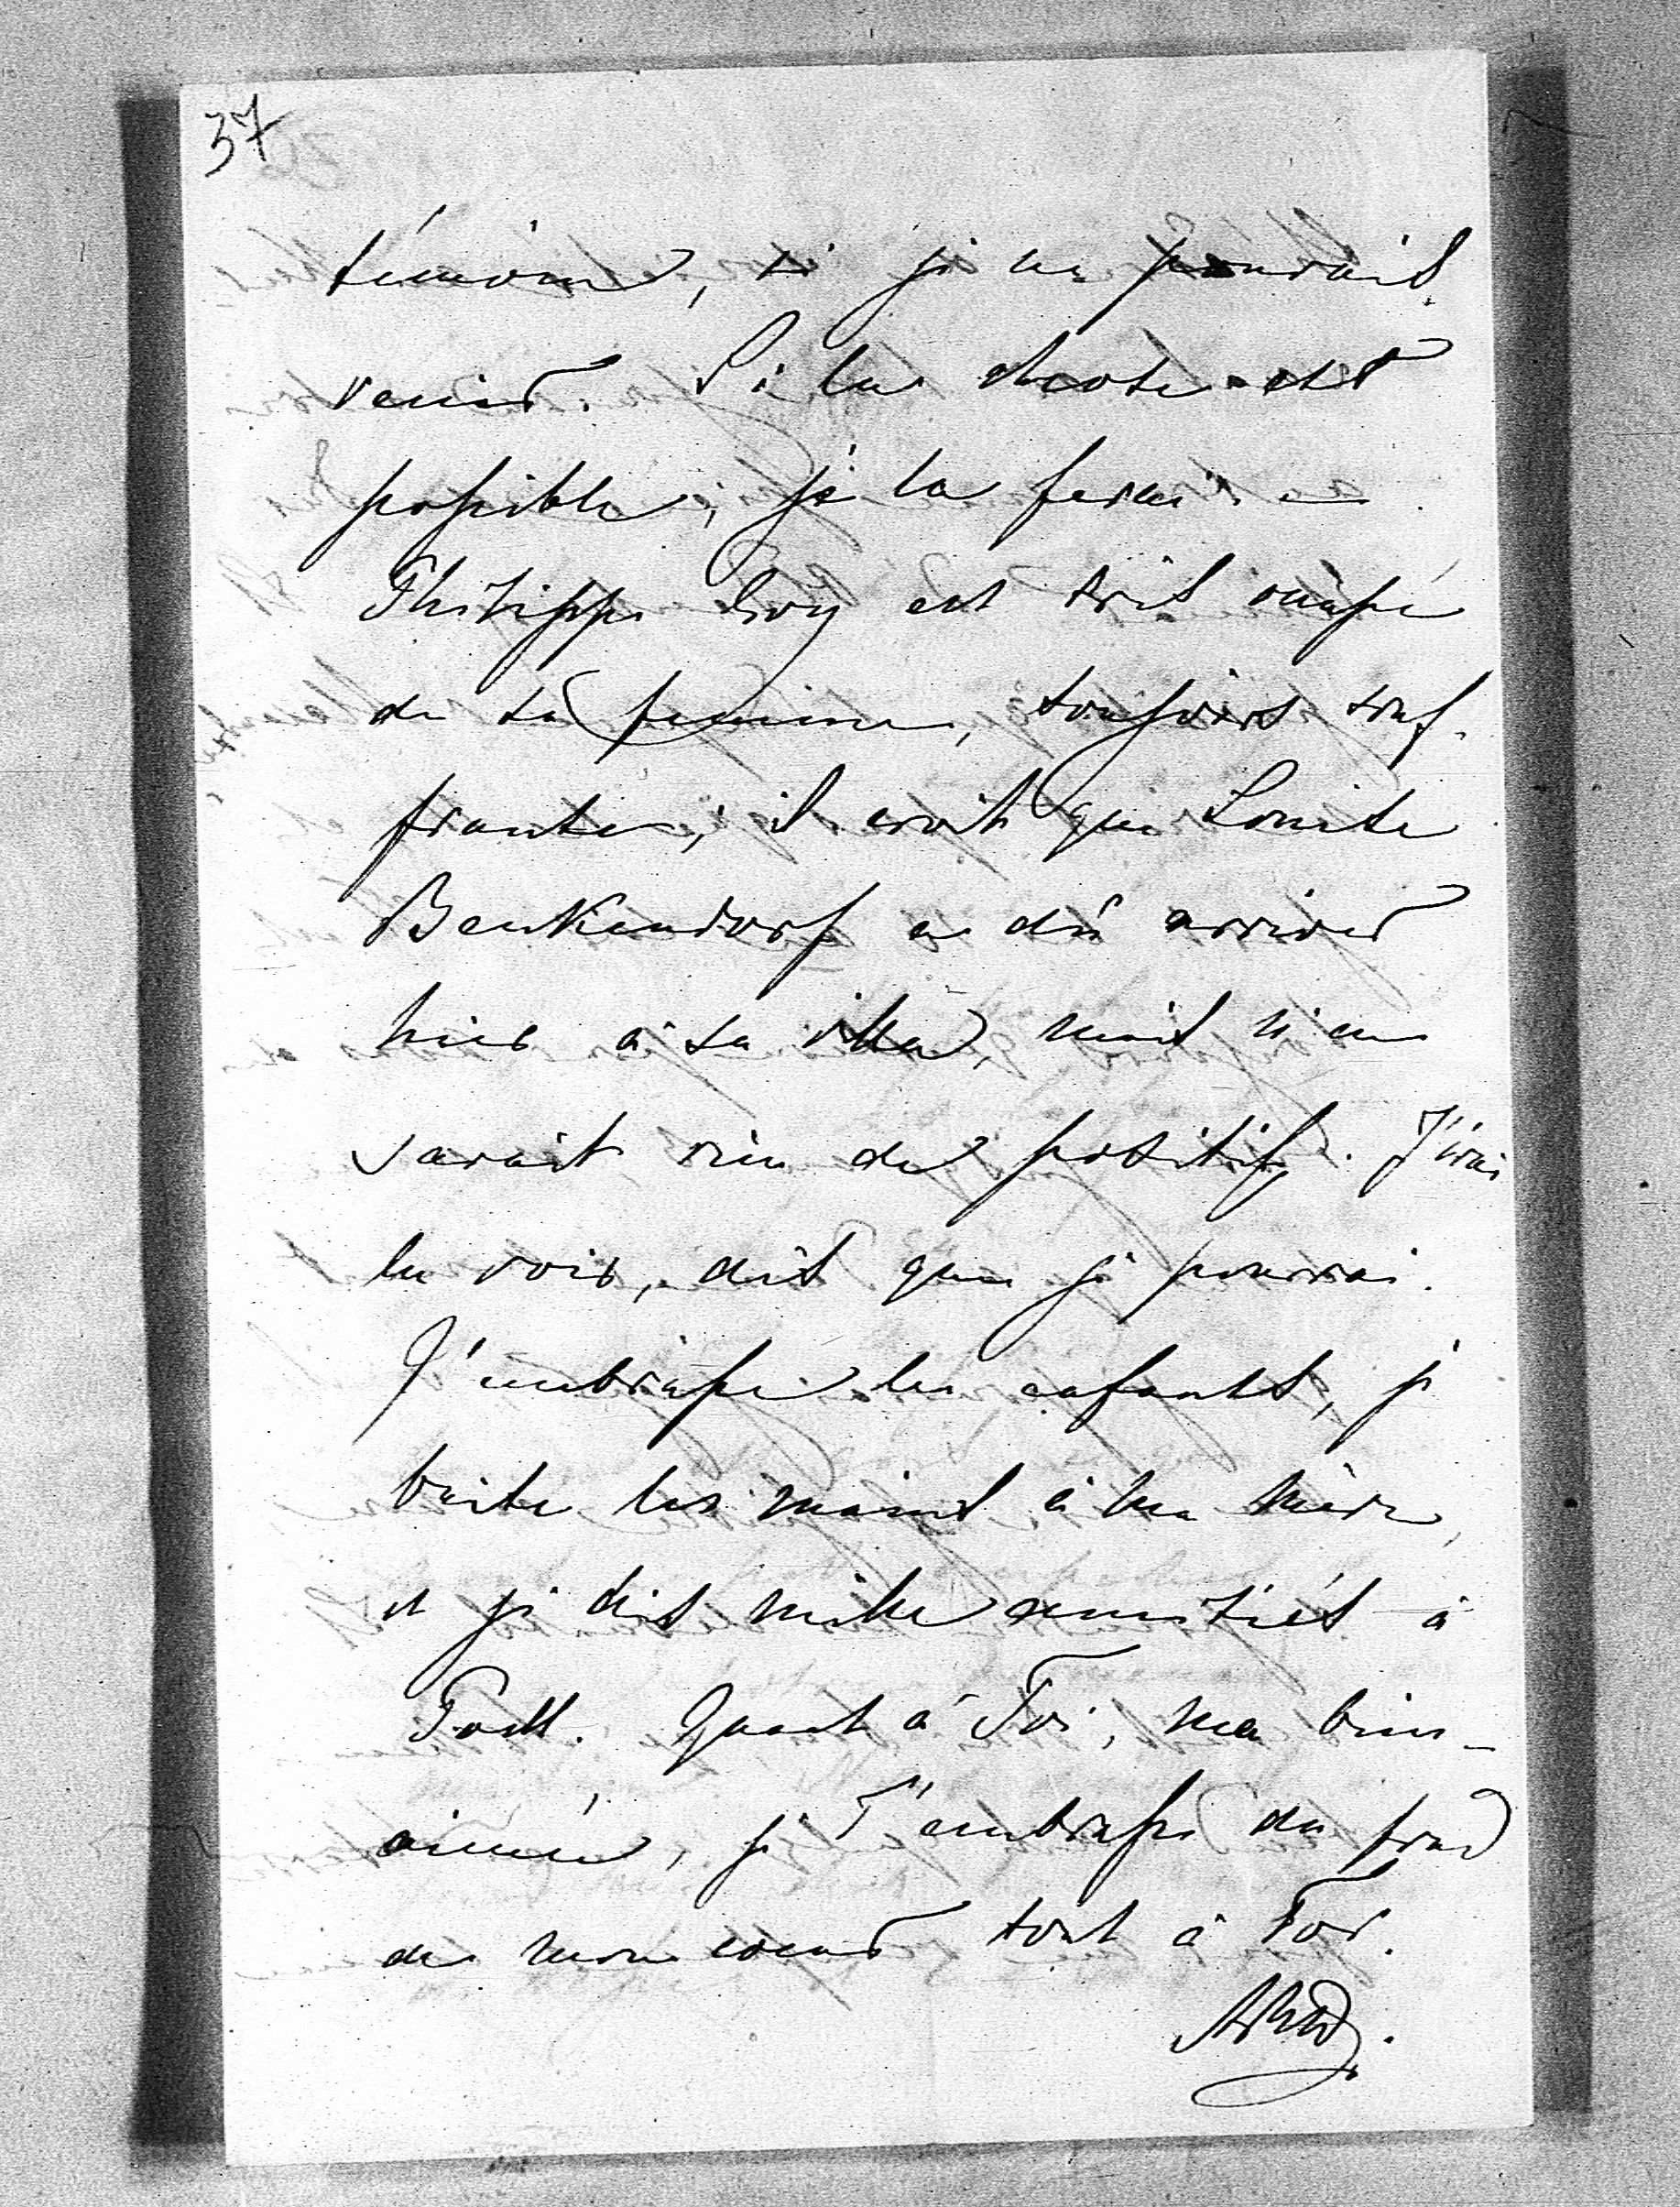 37
témoin, si je ne pourrais
venir. Si la chose est
possible, je la ferai. —
Philippe Croy est très occupé
de sa femme, toujours souf-
frante; il croit que Louise
Benkendorf a dû arriver
hier à sa villa, mais n'en
savait rien de positif. J'irai
la voir, dès que je pourrai.
J'embrasse les enfants, je
baise les mains à ma mère,
et je dis mille amitiés à
Todt. Quant à Toi, ma bien-
aimée, je T'embrasse du fond
de mon coeur tout à Toi.